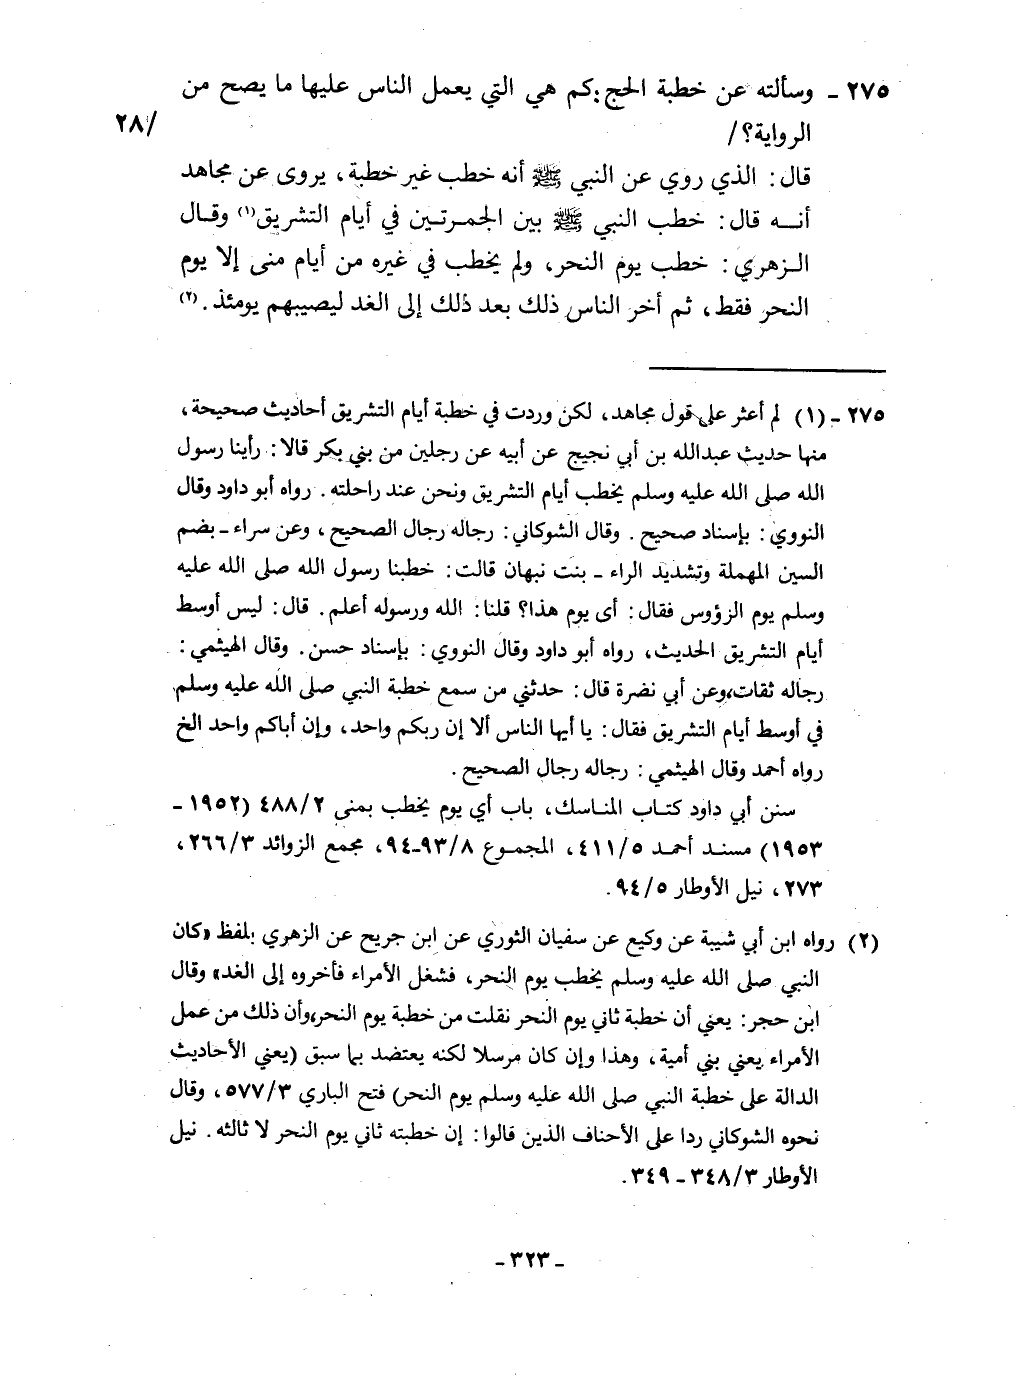 ٢٧٥ ـ وسألته عن خطبة الحج : كم هي التي يعمل الناس عليها ما يصح من
الرواية؟/
/٢٨
قال : الذي روي عن النبي ﷺ أنه خطب غير خطبة، يروى عن مجاهد
أنــه قال : خطب النبي ﷺ بين الجمرتين في أيام التشريق(١) وقــال
الـزهري : خطب يوم النحر، ولم يخطب في غيره من أيام منى إلا يوم
النحر فقط، ثم أخر الناس ذلك بعد ذلك إلى الغد ليصيبهم يومئذ . (٢)
٢٧٥ ـ (١) لم أعثر على قول مجاهد، لكن وردت في خطبة أيام التشريق أحاديث صحيحة،
منها حديث عبدالله بن أبي نجيح عن أبيه عن رجلين من بني بكر قالا : رأينا رسول
الله صلى الله عليه وسلم يخطب أيام التشريق ونحن عند راحلته . رواه أبو داود وقال
النووي : بإسناد صحيح . وقال الشوكاني : رجاله رجال الصحيح ، وعن سراء ـ بضم
السين المهملة وتشديد الراء ـ بنت نبهان قالت : خطبنا رسول الله صلى الله عليه
وسلم يوم الرؤوس فقال : أى يوم هذا؟ قلنا : الله ورسوله أعلم . قال : ليس أوسط
أيام التشريق الحديث، رواه أبو داود وقال النووي : بإسناد حسن . وقال الهيثمي :
رجاله ثقات، وعن أبي نضرة قال : حدثني من سمع خطبة النبي صلى الله عليه وسلم
في أوسط أيام التشريق فقال : يا أيها الناس ألا إن ربكم واحد، وإن أباكم واحد الخ
رواه أحمد وقال الهيثمي : رجاله رجال الصحيح .
سنن أبي داود كتاب المناسك، باب أي يوم يخطب بمنى ٤٨٨/٢ (١٩٥٢ ـ
١٩٥٣) مسند أحمد ٤١١/٥، المجموع ٩٣/٨ـ٩٤، مجمع الزوائد ٢٦٦/٣،
٢٧٣ ، نيل الأوطار ٩٤/٥ .
(٢) رواه ابن أبي شيبة عن وكيع عن سفيان الثوري عن ابن جريح عن الزهري بلفظ «كان
النبي صلى الله عليه وسلم يخطب يوم النحر، فشغل الأمراء فأخروه إلى الغد» وقال
ابن حجر : يعني أن خطبة ثاني يوم النحر نقلت من خطبة يوم النحر، وأن ذلك من عمل
الأمراء يعني بني أمية ، وهذا وإن كان مرسلا لكنه يعتضد بما سبق (يعني الأحاديث
الدالة على خطبة النبي صلى الله عليه وسلم يوم النحر) فتح الباري ٥٧٧/٣ ، وقال
نحوه الشوكاني ردا على الأحناف الذين قالوا : إن خطبته ثاني يوم النحر لا ثالثه . نيل
الأوطار ٣٤٨/٣ ـ ٣٤٩ .
ـ ٣٢٣ ـ